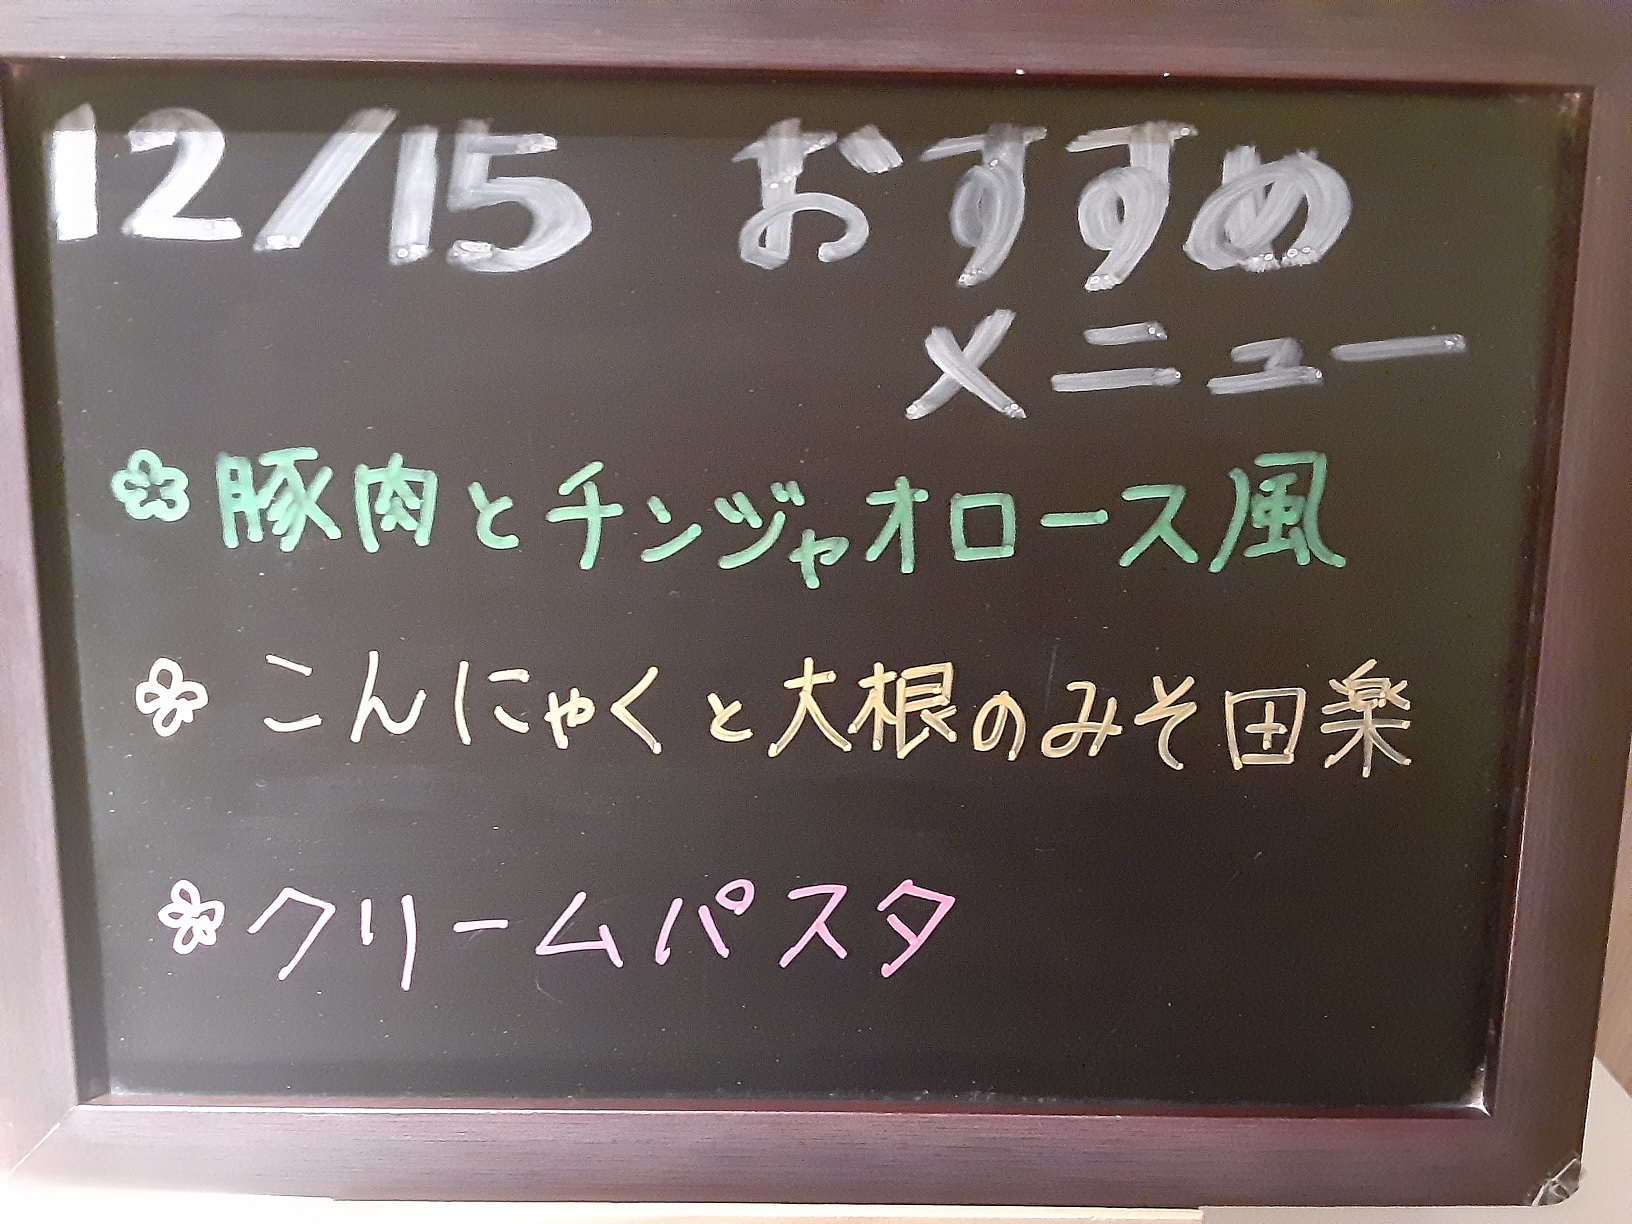 12/15 おすすめ
メニュー
豚肉とチンジャオロース風
こんにゃくと大根のみそ田楽
クリームパスタ